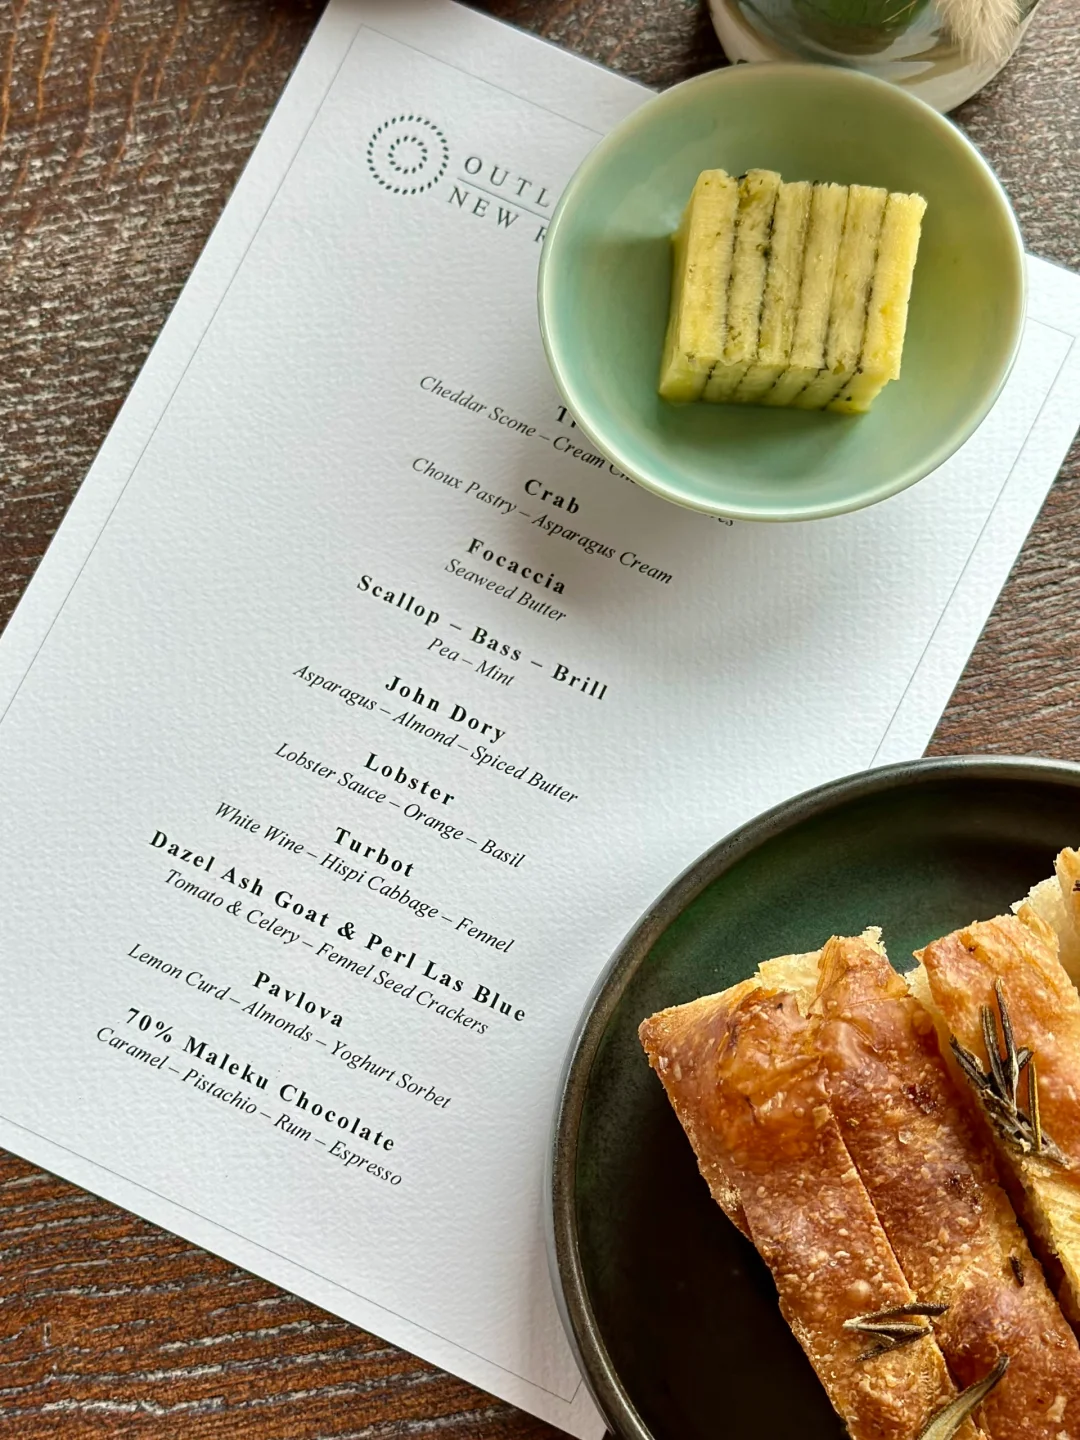 OUTL
NEW
Cheddar Scone – Cream
Crab
Choux Pastry – Asparagus Cream
Focaccia
Seaweed Butter
Scallop – Bass – Brill
Pea – Mint
John Dory
Asparagus – Almond – Spiced Butter
Lobster
Lobster Sauce – Orange – Basil
Turbot
White Wine – Hispi Cabbage – Fennel
Dazel Ash Goat & Perl Las Blue
Tomato & Celery – Fennel Seed Crackers
Pavlova
Lemon Curd – Almonds – Yoghurt Sorbet
70% Maleku Chocolate
Caramel – Pistachio – Rum – Espresso